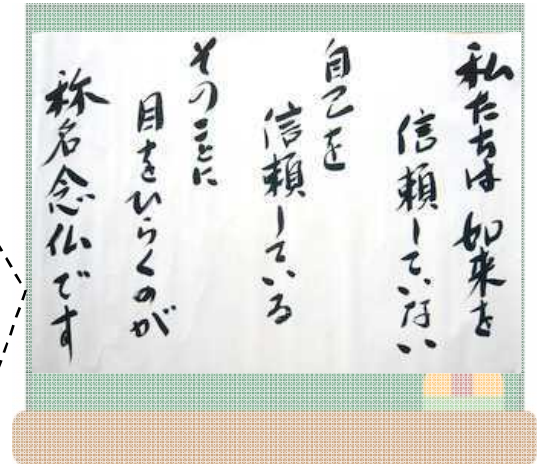 私たちは如来を
信頼していない
自己を
信頼している
そのことに
目をひらくのが
称名念仏です